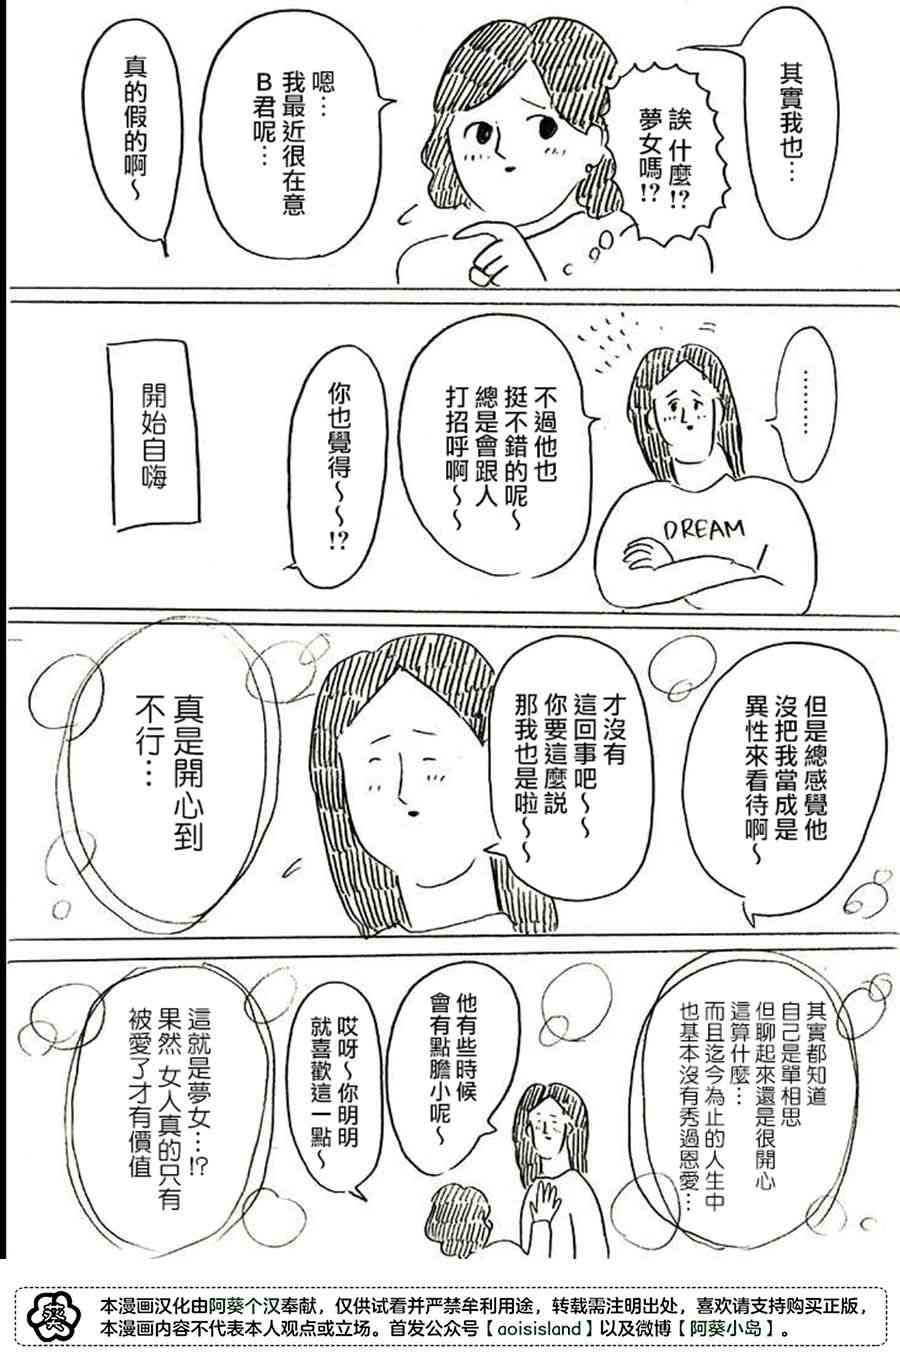 其實我也…
誒 什麼!?
夢女嗎!?
嗯…
我最近很在意
B君呢…
真的假的啊～
………
DREAM
不過他也
挺不錯的呢～
總是會跟人
打招呼啊～～
你也覺得～～!?
開始自嗨
但是總感覺他
沒把我當成是
異性來看待啊～
才沒有
這回事吧～～
你要這麼說
那我也是啦～
真是開心到
不行…
其實都知道
自己是單相思
但聊起來還是很開心
這算什麼…
而且迄今為止的人生中
也基本沒有秀過恩愛…
他有些時候
會有點膽小呢～
哎呀～你明明
就喜歡這一點～
這就是夢女…!?
果然 女人真的只有
被愛了才有價值
葵
本漫画汉化由阿葵个汉奉献，仅供试看并严禁牟利用途，转载需注明出处，喜欢请支持购买正版，
本漫画内容不代表本人观点或立场。首发公众号【aoisisland】以及微博【阿葵小岛】。